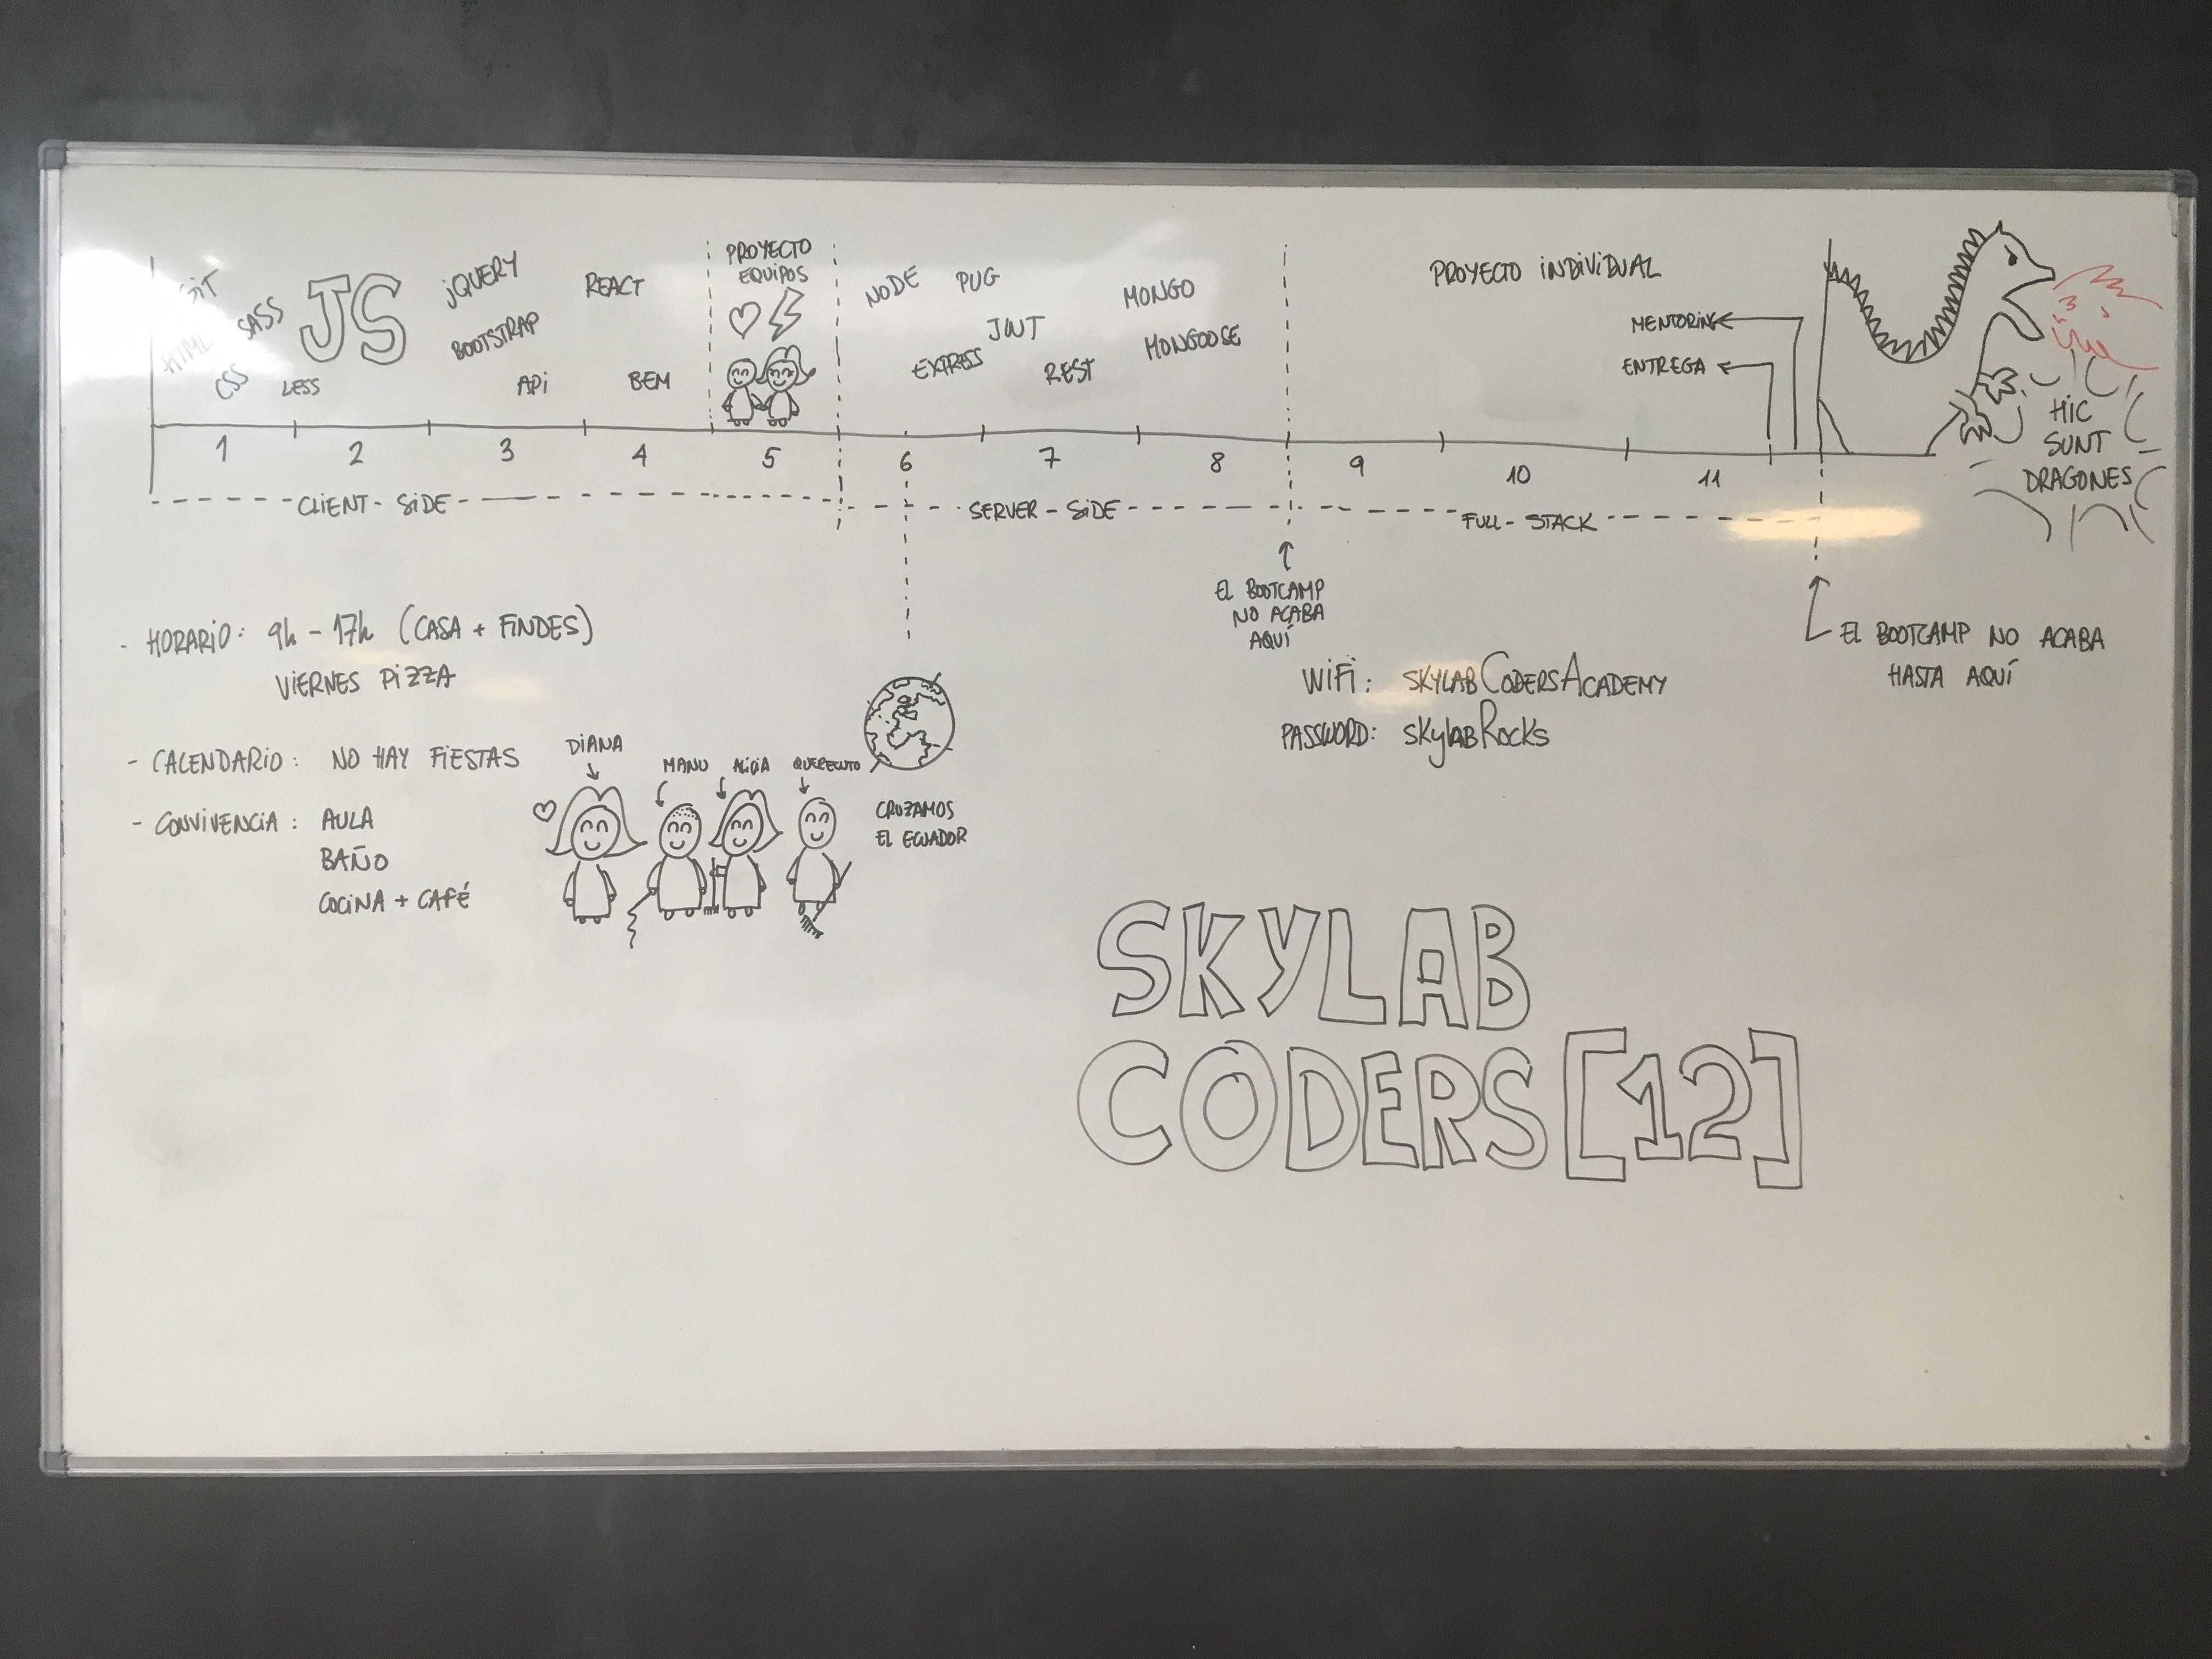 GIT
HTML
CSS
SASS
LESS
JS
jQUERY
BOOTSTRAP
APi
REACT
BEM
PROYECTO
EQUIPOS
NODE
PUG
JWT
EXPRESS
REST
MONGO
MONGOOSE
PROYECTO INDIVIDUAL
MENTORING
ENTREGA
HIC
SUNT
DRAGONES
1 2 3 4 5 6 7 8 9 10 11
CLIENT-SIDE
SERVER-SIDE
FULL-STACK
EL BOOTCAMP
NO ACABA
AQUÍ
EL BOOTCAMP NO ACABA
HASTA AQUÍ
- HORARIO: 9h - 17h (CASA + FINDES)
VIERNES PIZZA
- CALENDARIO: NO HAY FIESTAS
- CONVIVENCIA: AULA
BAÑO
COCINA + CAFÉ
DIANA
MANU
ALICIA
CRUZAMOS
EL ECUADOR
WIFI: SKYLABCODERSACADEMY
PASSWORD: SkylabRocks
SKYLAB
CODERS[12]